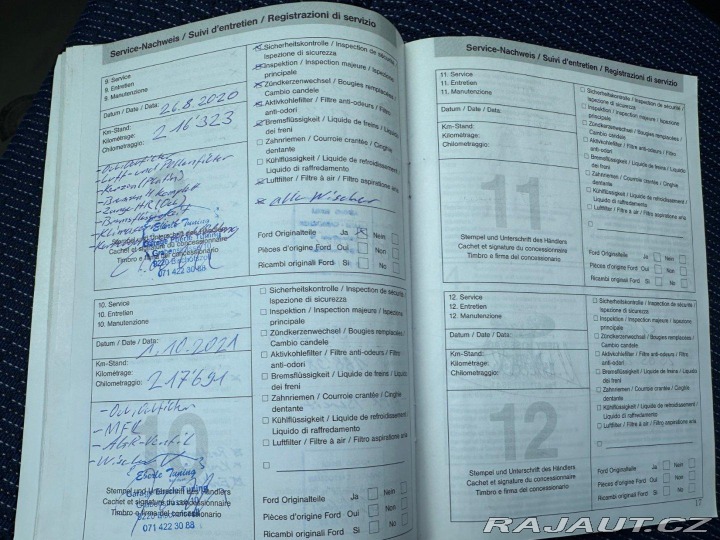 Service-Nachweis / Suivi d'entretien / Registrazioni di servizio
9. Service
9. Entretien
9. Manutenzione
Datum / Date / Data: 26.8.2020
Km-Stand:
Kilométrage:
Chilometraggio: 216'323
- Luft- und Pollenfilter
Eberle Tuning
Stempel und Unterschrift des Händlers
Cachet et signature du concessionnaire
Timbro e firma del concessionario
071 422 30 88
Sicherheitskontrolle / Inspection de sécurité /
Ispezione di sicurezza
Inspektion / Inspection majeure / Ispezione
principale
Zündkerzenwechsel / Bougies remplacées /
Cambio candele
Aktivkohlefilter / Filtre anti-odeurs / Filtro
anti-odori
Bremsflüssigkeit / Liquide de freins / Liquido
dei freni
Zahnriemen / Courroie crantée / Cinghia
dentante
Kühlflüssigkeit / Liquide de refroidissement /
Liquido di raffreddamento
Luftfilter / Filtre à air / Filtro aspirazione aria
alle Wischer
Ford Originalteile Ja Nein
Pièces d'origine Ford Oui Non
Ricambi originali Ford Si No
10. Service
10. Entretien
10. Manutenzione
Datum / Date / Data: 1.10.2021
Km-Stand:
Kilométrage:
Chilometraggio: 217'691
- MFK
- AGR-Ventil
- Wischer
10
Eberle Tuning
Stempel und Unterschrift des Händlers
Cachet et signature du concessionnaire
Timbro e firma del concessionario
071 422 30 88
Sicherheitskontrolle / Inspection de sécurité /
Ispezione di sicurezza
Inspektion / Inspection majeure / Ispezione
principale
Zündkerzenwechsel / Bougies remplacées /
Cambio candele
Aktivkohlefilter / Filtre anti-odeurs / Filtro
anti-odori
Bremsflüssigkeit / Liquide de freins / Liquido
dei freni
Zahnriemen / Courroie crantée / Cinghia
dentante
Kühlflüssigkeit / Liquide de refroidissement /
Liquido di raffreddamento
Luftfilter / Filtre à air / Filtro aspirazione aria
Ford Originalteile Ja Nein
Pièces d'origine Ford Oui Non
Ricambi originali Ford Si No
Service-Nachweis / Suivi d'entretien / Registrazioni di servizio
11. Service
11. Entretien
11. Manutenzione
Datum / Date / Data:
Km-Stand:
Kilométrage:
Chilometraggio:
11
Stempel und Unterschrift des Händlers
Cachet et signature du concessionnaire
Timbro e firma del concessionario
Sicherheitskontrolle / Inspection de sécurité /
Ispezione di sicurezza
Inspektion / Inspection majeure / Ispezione
principale
Zündkerzenwechsel / Bougies remplacées /
Cambio candele
Aktivkohlefilter / Filtre anti-odeurs / Filtro
anti-odori
Bremsflüssigkeit / Liquide de freins / Liquido
dei freni
Zahnriemen / Courroie crantée / Cinghia
dentante
Kühlflüssigkeit / Liquide de refroidissement /
Liquido di raffreddamento
Luftfilter / Filtre à air / Filtro aspirazione aria
Ford Originalteile Ja Nein
Pièces d'origine Ford Oui Non
Ricambi originali Ford Si No
12. Service
12. Entretien
12. Manutenzione
Datum / Date / Data:
Km-Stand:
Kilométrage:
Chilometraggio:
12
Stempel und Unterschrift des Händlers
Cachet et signature du concessionnaire
Timbro e firma del concessionario
Sicherheitskontrolle / Inspection de sécurité /
Ispezione di sicurezza
Inspektion / Inspection majeure / Ispezione
principale
Zündkerzenwechsel / Bougies remplacées /
Cambio candele
Aktivkohlefilter / Filtre anti-odeurs / Filtro
anti-odori
Bremsflüssigkeit / Liquide de freins / Liquido
dei freni
Zahnriemen / Courroie crantée / Cinghia
dentante
Kühlflüssigkeit / Liquide de refroidissement /
Liquido di raffreddamento
Luftfilter / Filtre à air / Filtro aspirazione aria
Ford Originalteile Ja Nein
Pièces d'origine Ford Oui Non
Ricambi originali Ford Si No
17
RAJAUT.CZ